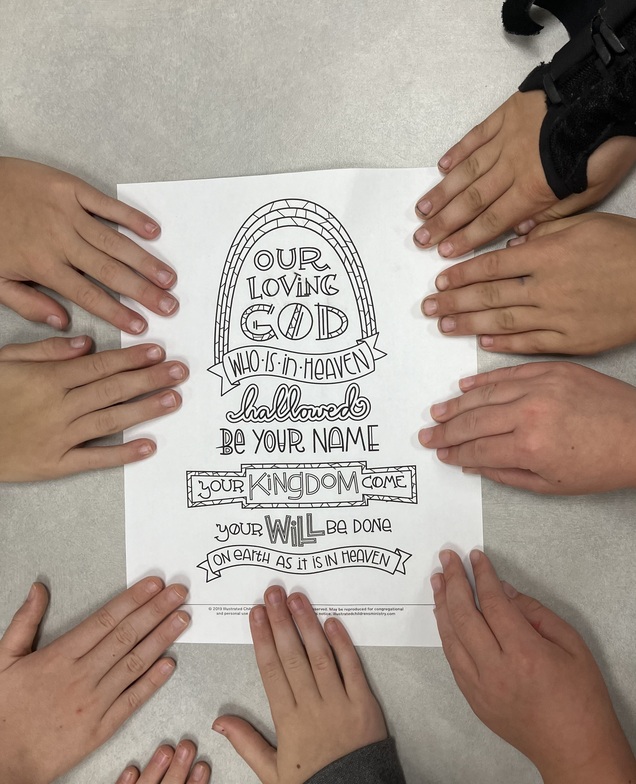 OUR
LOViNG
GOD
WHO·iS·in·HEAVEN
hallowed
BE YOUR NAME
YOUR KiNGDOM COME
YOUR WiLL BE DONE
ON EARTH AS it iS iN HEAVEN
© 2019 Illustrated served. May be reproduced for congregational
and personal use illustratedchildrensministry.com